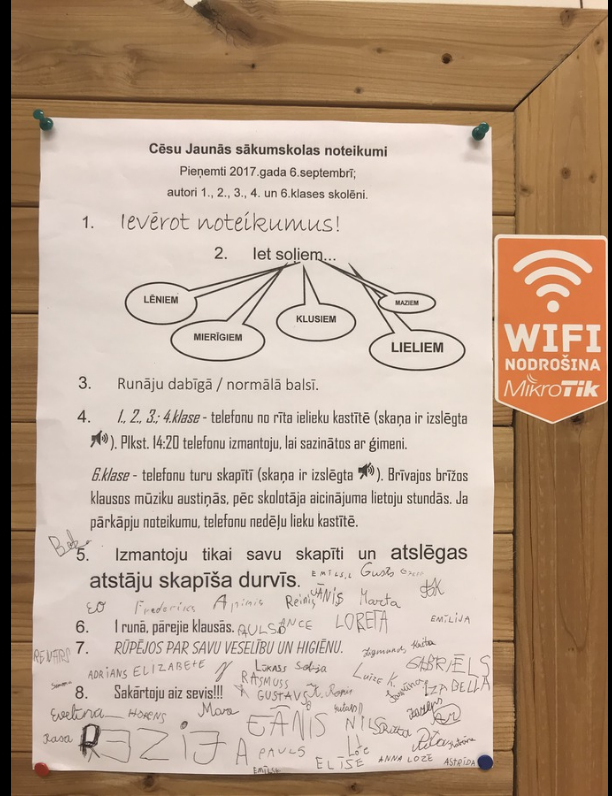 Cēsu Jaunās sākumskolas noteikumi
Pieņemti 2017.gada 6.septembrī;
autori 1., 2., 3., 4. un 6.klases skolēni.
1. Ievērot noteikumus!
2. Iet soļiem...
LĒNIEM
MIERĪGIEM
KLUSIEM
MAZIEM
LIELIEM
3. Runāju dabīgā / normālā balsī.
4. 1., 2., 3.; 4.klase - telefonu no rīta ielieku kastītē (skaņa ir izslēgta
). Plkst. 14:20 telefonu izmantoju, lai sazinātos ar ģimeni.
6.klase - telefonu turu skapītī (skaņa ir izslēgta ). Brīvajos brīžos
klausos mūziku austiņās, pēc skolotāja aicinājuma lietoju stundās. Ja
pārkāpju noteikumu, telefonu nedēļu lieku kastītē.
5. Izmantoju tikai savu skapīti un atslēgas
atstāju skapīša durvīs.
Gusts
Frederiks
Reinis
JĀNIS
Marta
6. I runā, pārejie klausās.
LORETA
EMĪLIJA
7. RŪPĒJOS PAR SAVU VESELĪBU UN HIGIĒNU.
RENĀRS
ADRIANS ELIZABETE
Sofija
Luīze K.
GABRIĒLS
RASMUSS
IZABELLA
8. Sakārtoju aiz sevis!!!
GUSTAVS
Evelīna
Mara
JĀNIS
NILS
Rasa
REZIJA
PAULS
ELĪSE
ANNA LOZE
ASTRĪDA
EMĪLIJA
WIFI
NODROŠINA
MikroTik